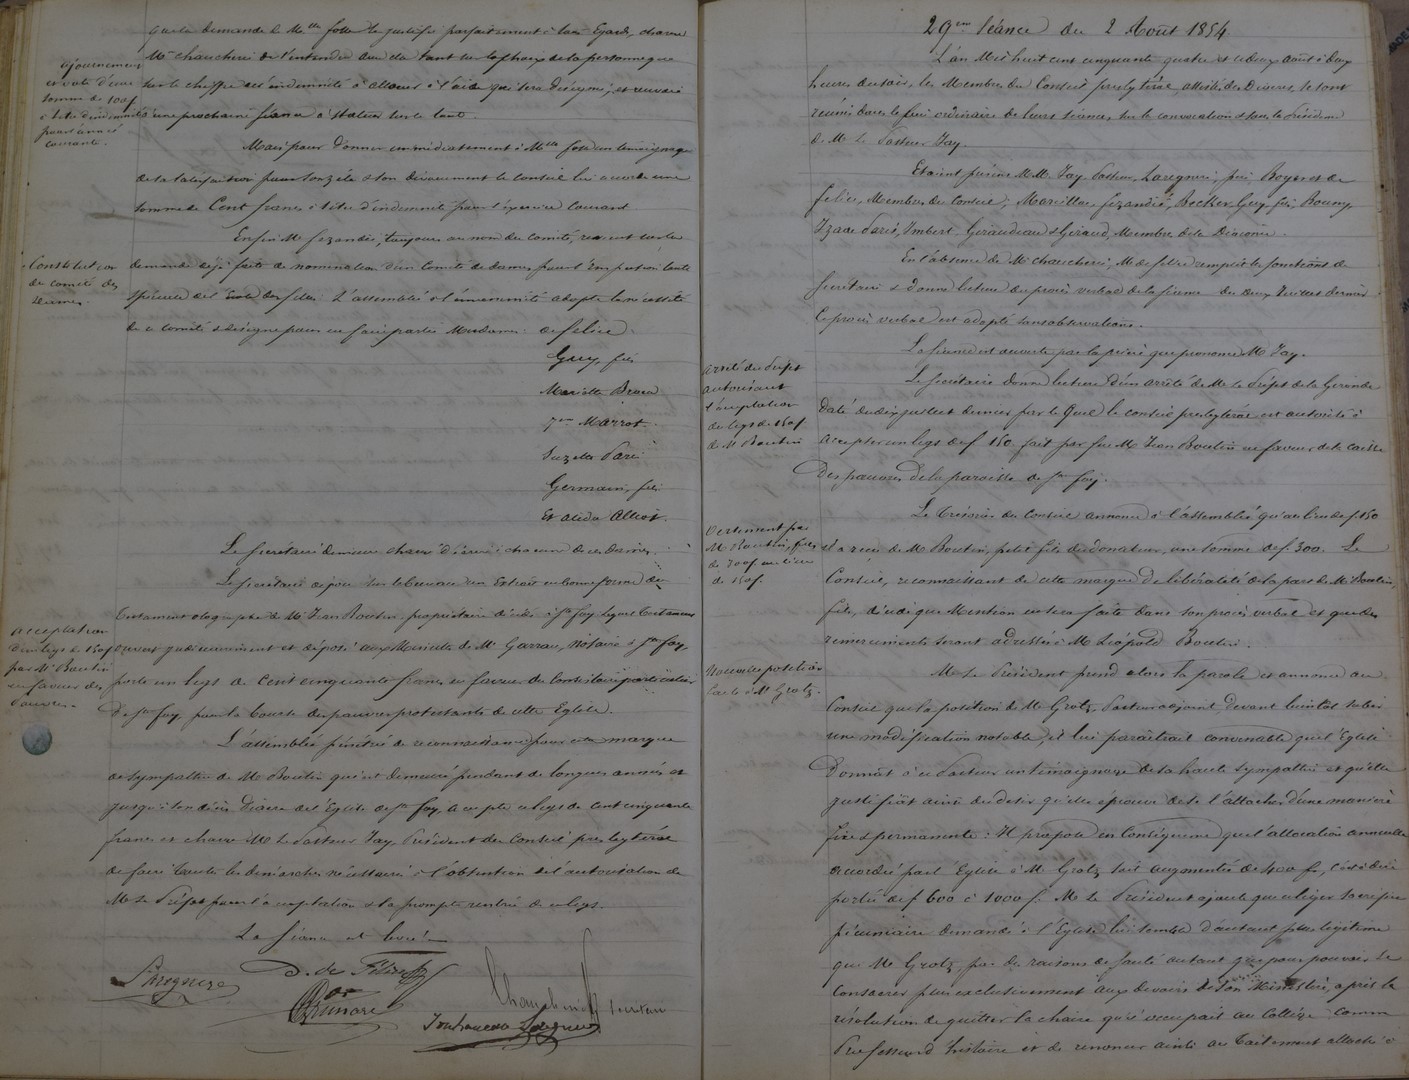 que la demande de Mlle fosse se justifie parfaitement à tous égards, charge
Mr chaucherie de s'entendre avec elle tant sur le choix de la personne que
sur le chiffre de l'indemnité à allouer à l'aide qui sera désigné, et renvoie
à une prochaine séance à statuer sur le tout.
ajournement
et vote d'une
somme de 100f
à titre d'indemnité
pour l'année
courante.
Mais pour donner immédiatement à Mlle fosse un témoignage
de sa satisfaction pour son zèle & son dévouement le conseil lui accorde une
somme de Cent francs à titre d'indemnité pour l'exercice courant
Enfin Mr Jezandié, toujours au nom du comité, revient sur la
demande déjà faite de nomination d'un Comité de dames pour l'inspection toute
spéciale de l'école des filles. L'assemblée à l'unanimité adopte la nécessité
de ce comité & désigne pour en faire partie Mesdames: de felice
Constitution
du comité des
Dames.
Guy, fils
Mariette Braud
Marrot
Suzette Paris
Germain, fils
Et alida Alliot.
Le Secrétaire demeure chargé d'écrire à chacune de ces dames.
Le Secrétaire dépose sur le bureau un Extrait en bonne forme du
testament olographe de Mr Jean Boutin, propriétaire décédé à Ste foy, lequel testament
ouvert judiciairement et déposé aux Minutes de Me Garrau, Notaire à Ste foy,
porte un legs de cent cinquante francs en faveur du Consistoire particulier
de Ste foy, pour la bourse des pauvres protestants de cette Eglise.
acceptation
d'un legs de 150f
par Mr Boutin
en faveur des
Pauvres.
L'assemblée pénétrée de reconnaissance pour cette marque
de sympathie de Mr Boutin qui est demeuré pendant de longues années et
jusqu'à son décès Diacre de l'Eglise de Ste foy, accepte ce legs de cent cinquante
francs et charge Mr Le Pasteur Jay, Président du Conseil presbytéral
de faire toutes les démarches nécessaires à l'obtention de l'autorisation de
Mr Le Préfet pour l'acceptation & la prompte rentrée de ce legs.
La séance est levée
Laregnere D. de Félice
Chaucherie secrétaire
29me séance du 2 Août 1854
L'an Mil huit cent cinquante quatre et le deux août à deux
heures du soir, les Membres du Conseil presbytéral, assistés des Diacres, se sont
réunis dans le lieu ordinaire de leurs séances, sur la convocation & sous la Présidence
de Mr Le Pasteur Jay.
Etaient présents MM. Jay Pasteur, Laregnere, Boyer et de
felice, Membres du Conseil; Jezandié, Rocker, Guy, fils, Roumy,
Izaac Paris, Imbert, Geraudeau & Géraud, Membres de la Diaconie.
En l'absence de Mr chaucherie, Mr de felice remplit les fonctions de
Secrétaire & donne lecture du procès verbal de la séance du deux Juillet dernier.
Le procès verbal est adopté sans observations.
La séance est ouverte par la prière que prononce Mr Jay.
Le Secrétaire donne lecture d'un arrêté de Mr Le Préfet de la Gironde
daté du dix juillet dernier par le quel le conseil presbytéral est autorisé à
accepter un legs de f 150 fait par feu Mr Jean Boutin en faveur de la caisse
des pauvres de la paroisse de Ste foy.
arrêté du Préfet
autorisant
l'acceptation
du legs de 150f
de Mr Boutin
Le Trésorier du Conseil annonce à l'assemblée qu'au lieu de f. 150
il a reçu de Mr Boutin, petit fils du donateur, une somme de f. 300. Le
Conseil, reconnaissant de cette marque de libéralité de la part de Mr Boutin,
fils, décide que Mention en sera faite dans son procès verbal et que des
remerciements seront adressés à Mr Léopold Boutin.
Versement par
Mr Boutin, fils
de 300f au lieu
de 150f.
Mr Le Président prend alors la parole et annonce au
Conseil que la position de Mr Grotz, Pasteur adjoint, devant bientôt subir
une modification notable, il lui paraîtrait convenable que l'Eglise
donnât à ce Pasteur un témoignage de sa haute sympathie et qu'elle
justifiât ainsi du désir qu'elle éprouve de se l'attacher d'une manière
fixe & permanente: Il propose en Conséquence que l'allocation annuelle
accordée par l'Eglise à Mr Grotz soit augmentée de 400 f, c'est à dire
portée de f 600 à 1000 f. Mr Le Président ajoute que ce léger sacrifice
pécuniaire demandé à l'Eglise lui semble d'autant plus légitime
que Mr Grotz, par des raisons de santé autant que pour pouvoir se
consacrer plus exclusivement aux devoirs de son Ministère, a pris la
résolution de quitter la chaire qu'il occupait au Collège comme
Professeur d'histoire et de renoncer ainsi au traitement attaché à
Nouvelle position
faite à Mr Grotz.